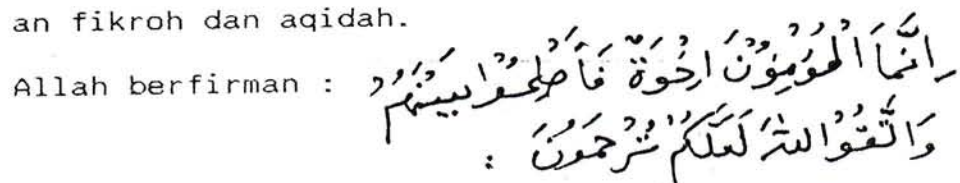 an fikroh dan aqidah.
Allah berfirman : اِنَّمَا الْمُؤْمِنُوْنَ اِخْوَةٌ فَأَصْلِحُوْا بَيْنَهُمْ
وَاتَّقُوْا اللّٰهَ لَعَلَّكُمْ تُرْحَمُوْنَ :